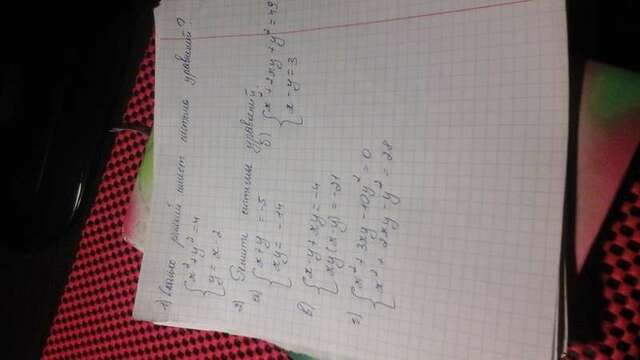 1) Сколько решений имеет система уравнений?
{x² + y² = 4
{y = x - 2
2) Решить системы уравнений.
а) {x + y = -5
{xy = -14
б) {x² + 2xy + y² = 49
{x - y = 3
в) {x - y + xy = -4
{xy(x-y) = -21
г) {x² + 3xy - 10y² = 0
{x² + 2xy - y² = 28